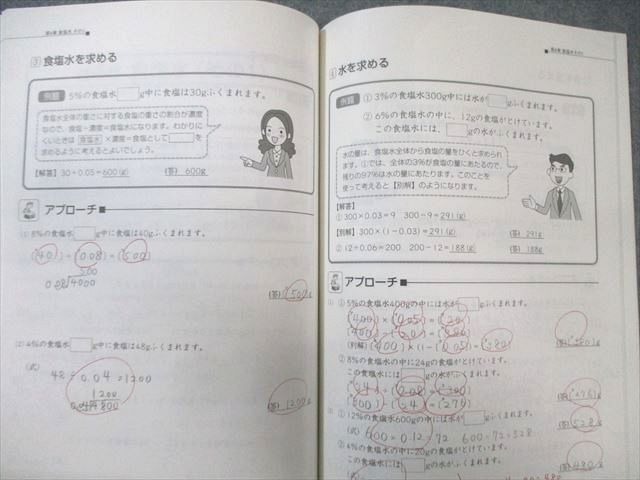 ③ 食塩水を求める
例題 5%の食塩水□g中に食塩は30gふくまれます。
食塩水全体の重さに対する食塩の重さの割合が濃度
なので、食塩÷濃度=食塩水になります。わかりに
くいときは 食塩水 ×濃度=食塩として□を
求めるように考えるとよいでしょう。
【解答】 30÷0.05=600(g) (答) 600g
アプローチ■
(1) 8%の食塩水□g中に食塩は40gふくまれます。
(40)÷(0.08)=(500)
500
0.08 4000
(答) 500g
(2) 4%の食塩水□g中に食塩は48gふくまれます。
(式)
48÷0.04=1200
1200
(答) 1200g
④ 水を求める
例題 ① 3%の食塩水300g中には水が□gふくまれます。
② 6%の食塩水の中に、12gの食塩がとけています。
この食塩水には、□gの水がふくまれます。
水の量は、食塩水全体から食塩の量をひくと求められ
ます。①では、全体の3%が食塩の量にあたるので、
残りの97%は水の量にあたります。このことを
使って考えると【別解】のようになります。
【解答】
① 300×0.03=9 300-9=291(g)
【別解】300×(1-0.03)=291(g) (答) 291g
② 12÷0.06=200 200-12=188(g) (答) 188g
アプローチ■
(1) ① 5%の食塩水400gの中には水が□gふくまれます。
(400)×(0.05)=(20)
(別解)(400)×(1-(0.05))=(380)
② 8%の食塩水の中に24gの食塩がとけています。
この食塩水には□gの水がふくまれます。
(24)÷(0.08)=(300)
(300)-(24)=(276)
(答) 276g
① 12%の食塩水600gの中には水が□gふくまれます。
(式) 600×0.12=72 600-72=528
(答) 528g
② 4%の食塩水の中に20gの食塩がとけています。
この食塩水には□gの水がふくまれます。
(答) 480g